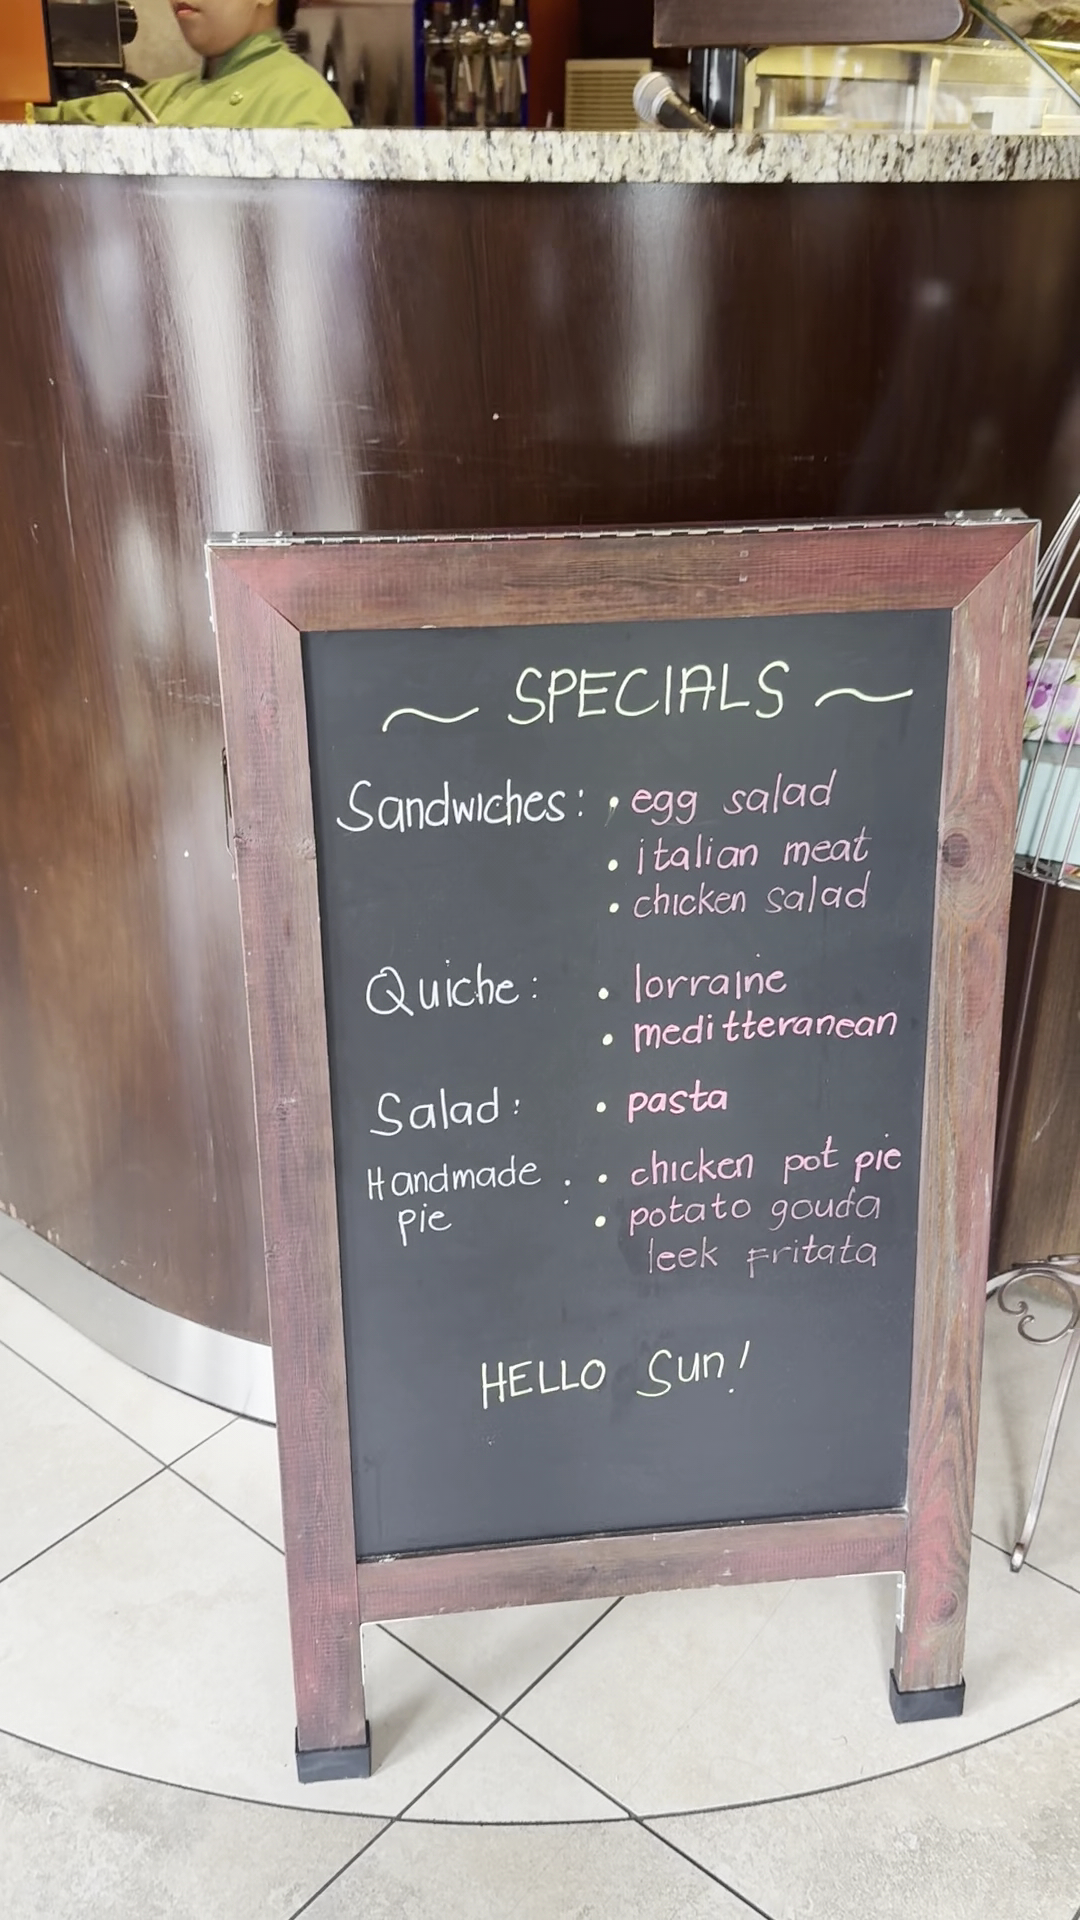 ~ SPECIALS ~
Sandwiches: • egg salad
• italian meat
• chicken salad
Quiche: • lorraine
• meditteranean
Salad: • pasta
Handmade : • chicken pot pie
pie • potato gouda
leek fritata
HELLO Sun!